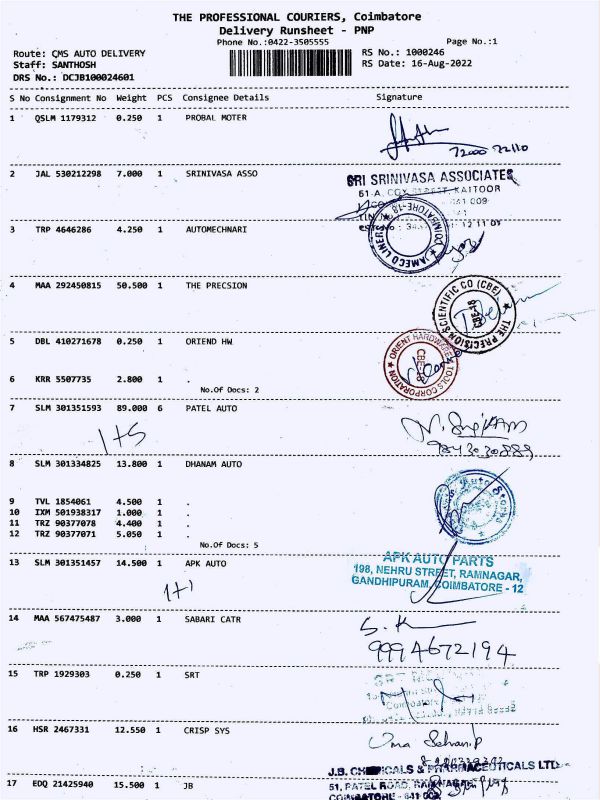 THE PROFESSIONAL COURIERS, Coimbatore
Delivery Runsheet - PNP
Phone No.:0422-3505555
Page No.:1
Route: CMS AUTO DELIVERY
RS No.: 1000246
Staff: SANTHOSH
RS Date: 16-Aug-2022
DRS No.: DCJB100024601
S No Consignment No Weight PCS Consignee Details Signature
1 QSLM 1179312 0.250 1 PROBAL MOTER
72000 22110
2 JAL 530212298 7.000 1 SRINIVASA ASSO
SRI SRINIVASA ASSOCIATES
61-A, STREET, KATTOOR
3 TRP 4646286 4.250 1 AUTOMECHNARI
JAMECO LINERS COIMBATORE-18
4 MAA 292450815 50.500 1 THE PRECSION
THE PRECISION SCIENTIFIC CO (CBE)
CBE-18
5 DBL 410271678 0.250 1 ORIEND HW
ORIENT HARDWARE & TOOLS CORPORATION
CBE-18
6 KRR 5507735 2.800 1 .
No.Of Docs: 2
7 SLM 301351593 89.000 6 PATEL AUTO
1+5
98430 30889
8 SLM 301334825 13.800 1 DHANAM AUTO
Auto Stores
9 TVL 1854061 4.500 1 .
10 IXM 501938317 1.000 1 .
11 TRZ 90377078 4.400 1 .
12 TRZ 90377071 5.050 1 .
No.Of Docs: 5
13 SLM 301351457 14.500 1 APK AUTO
1+1
APK AUTO PARTS
198, NEHRU STREET, RAMNAGAR,
GANDHIPURAM, COIMBATORE - 12
14 MAA 567475487 3.000 1 SABARI CATR
9994672194
15 TRP 1929303 0.250 1 SRT
SRT
16 HSR 2467331 12.550 1 CRISP SYS
J.B. CHEMICALS & PHARMACEUTICALS LTD
17 EDQ 21425940 15.500 1 JB
51, PATEL ROAD, RAMNAGAR
COIMBATORE - 641 009